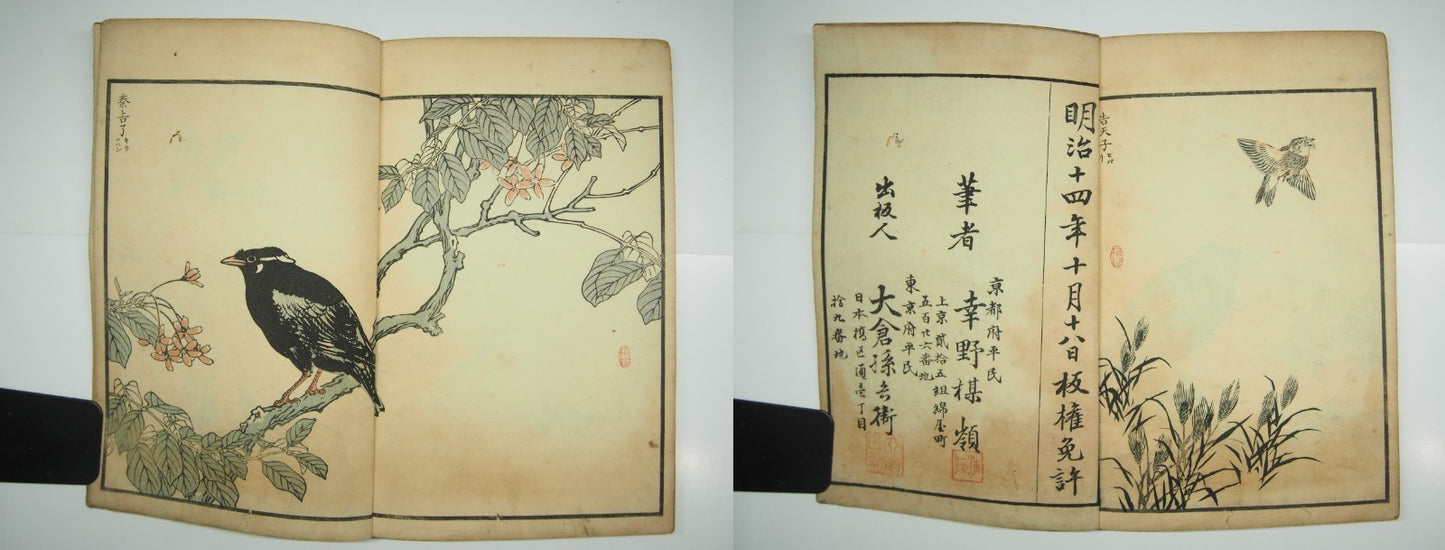 秦吉了
キウ
クハン
告天子
明治十四年十月十八日板權免許
京都府平民
筆者 幸野楳嶺
上京貳拾五組綿屋町
五百廿六番地
東京府平民
出板人 大倉孫兵衛
日本橋区通壱丁目
拾九番地